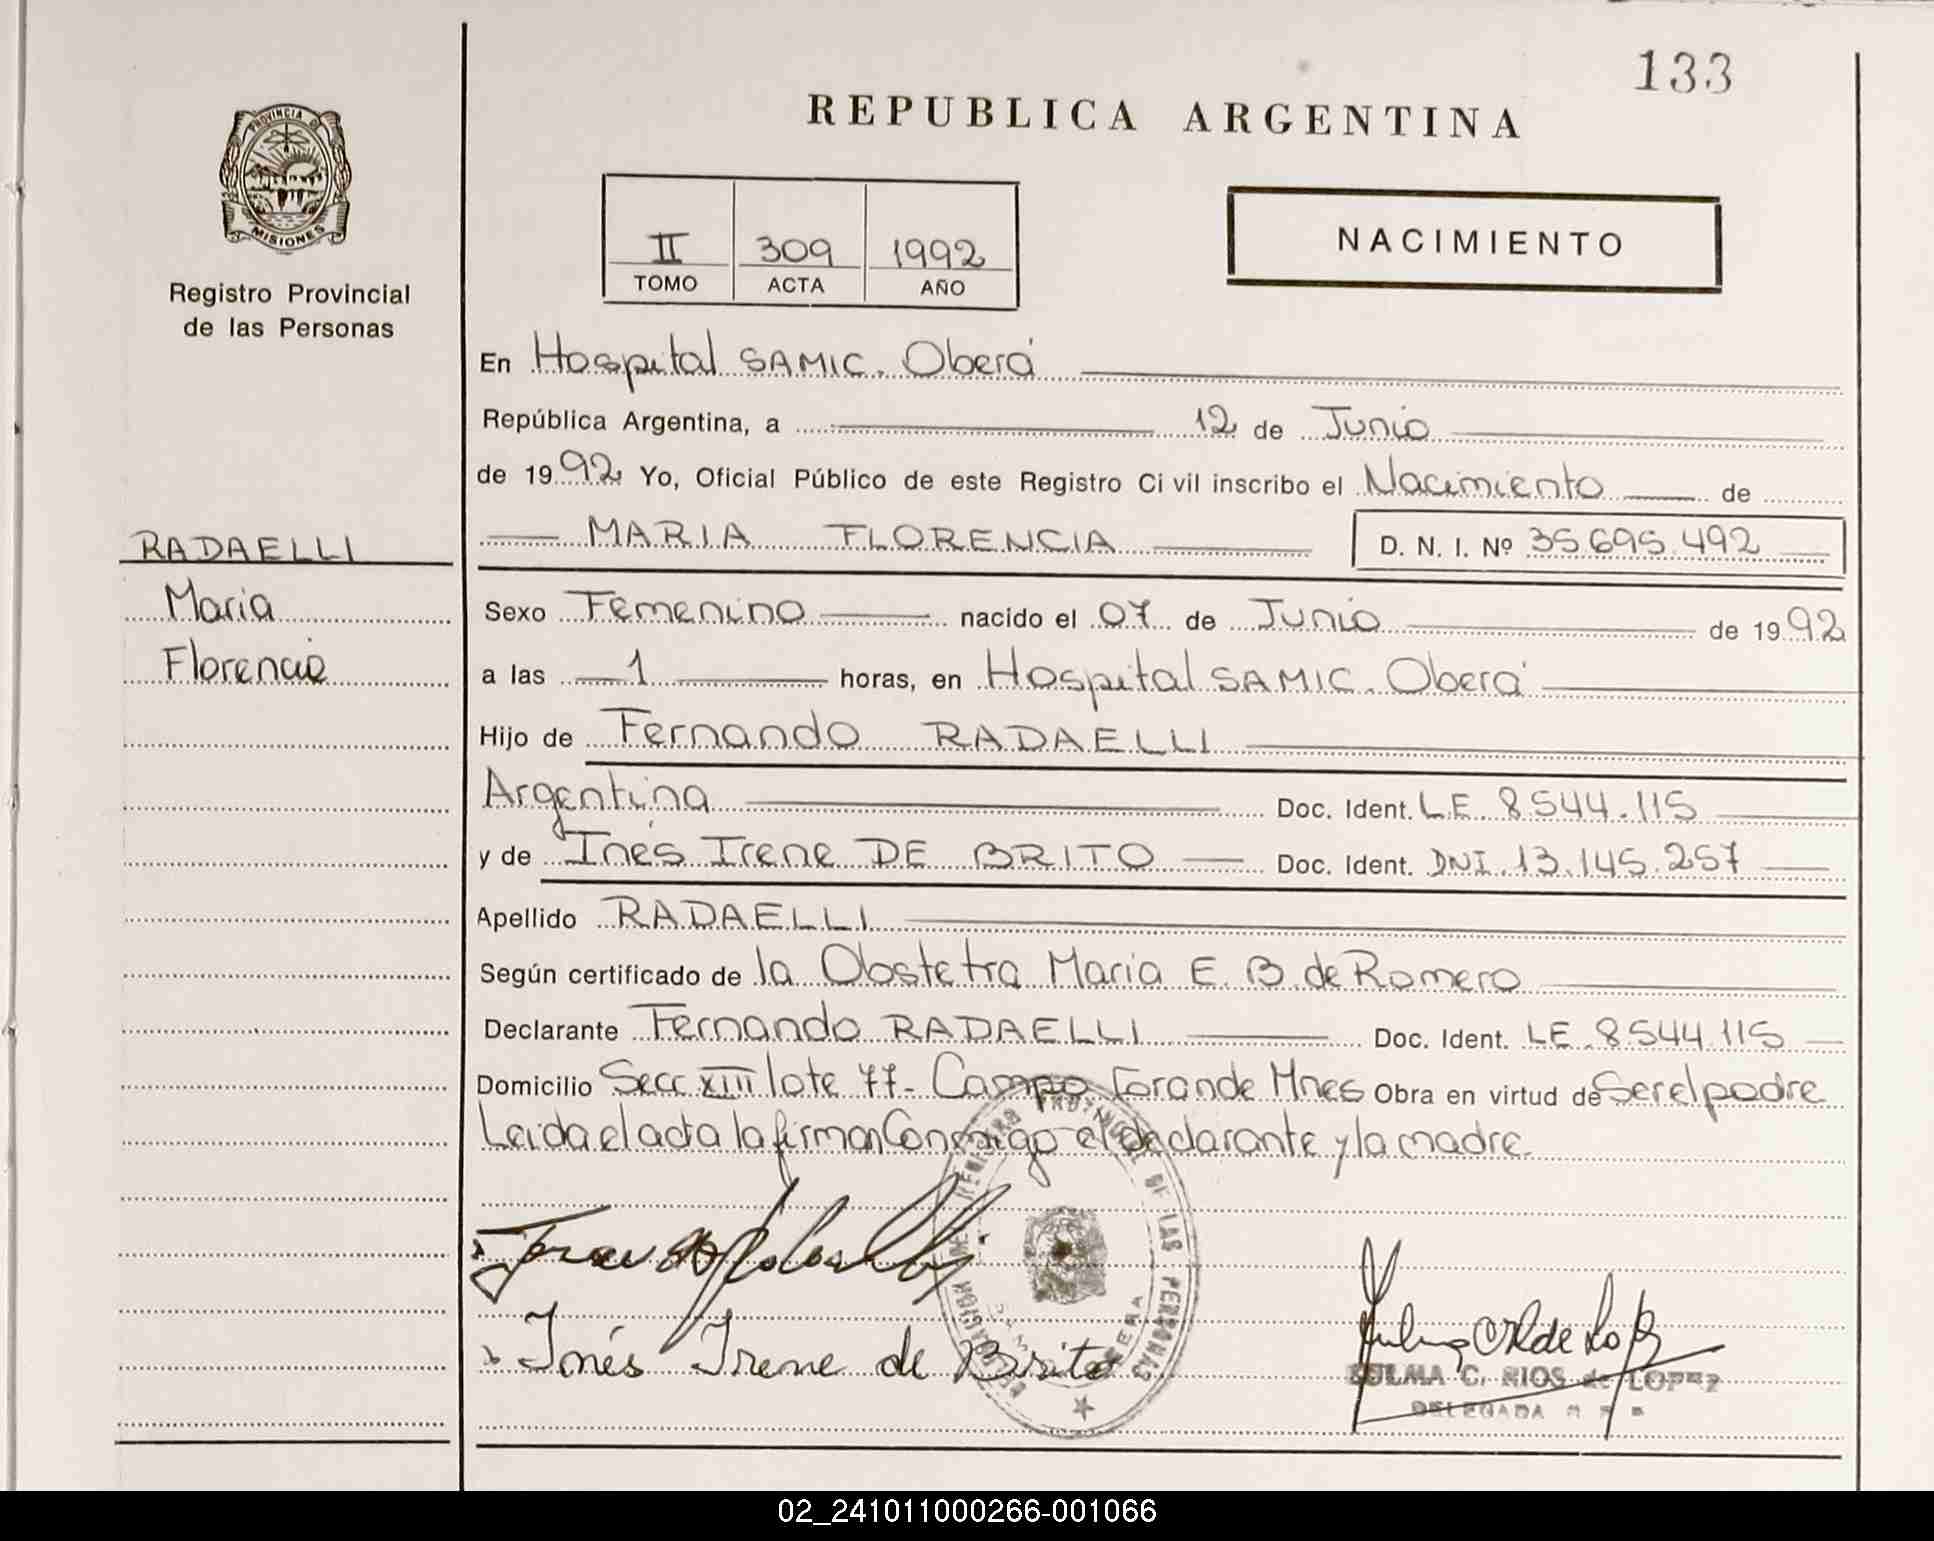 133
REPUBLICA ARGENTINA
PROVINCIA DE
MISIONES
Registro Provincial
de las Personas
II 309 1992
TOMO ACTA AÑO
NACIMIENTO
En Hospital SAMIC. Oberá
República Argentina, a 12 de Junio
de 1992 Yo, Oficial Público de este Registro Civil inscribo el Nacimiento de
MARIA FLORENCIA D. N. I. Nº 35.695.492
RADAELLI
Maria
Florencia
Sexo Femenino nacido el 07 de Junio de 1992
a las 1 horas, en Hospital SAMIC. Oberá
Hijo de Fernando RADAELLI
Argentina Doc. Ident. LE. 8544.115
y de Inés Irene DE BRITO Doc. Ident. DNI. 13.145.257
Apellido RADAELLI
Según certificado de la Obstetra Maria E. B. de Romero
Declarante Fernando RADAELLI Doc. Ident. LE. 8544.115
Domicilio Secc XIII lote 77- Campo Grande Mnes Obra en virtud de Ser el padre
Leida el acta la firman Conmigo el declarante y la madre.
Inés Irene de Brito
REGISTRO PROVINCIAL DE LAS PERSONAS
ZULMA C. RIOS de LOPEZ
DELEGADA
02_241011000266-001066